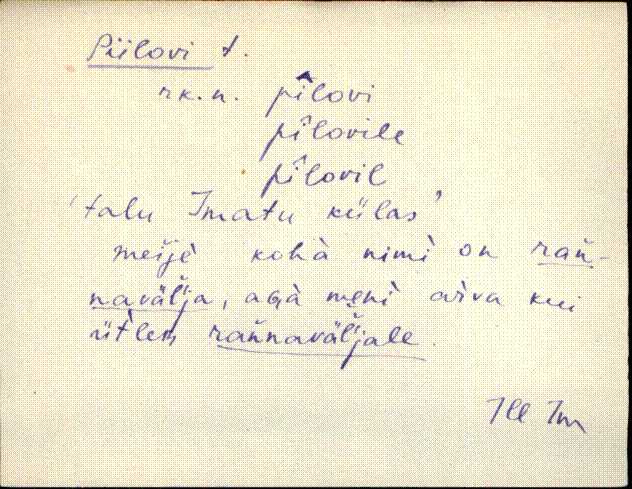 Piilovi t.
rk.n. pîlovi
pîlovile
pîlovil
'talu Imatu külas'
meiję̀ kohà nimì on rań-
naväĺja, agà menì arva kui
ütlem rańnaväĺjale.
Ill Im